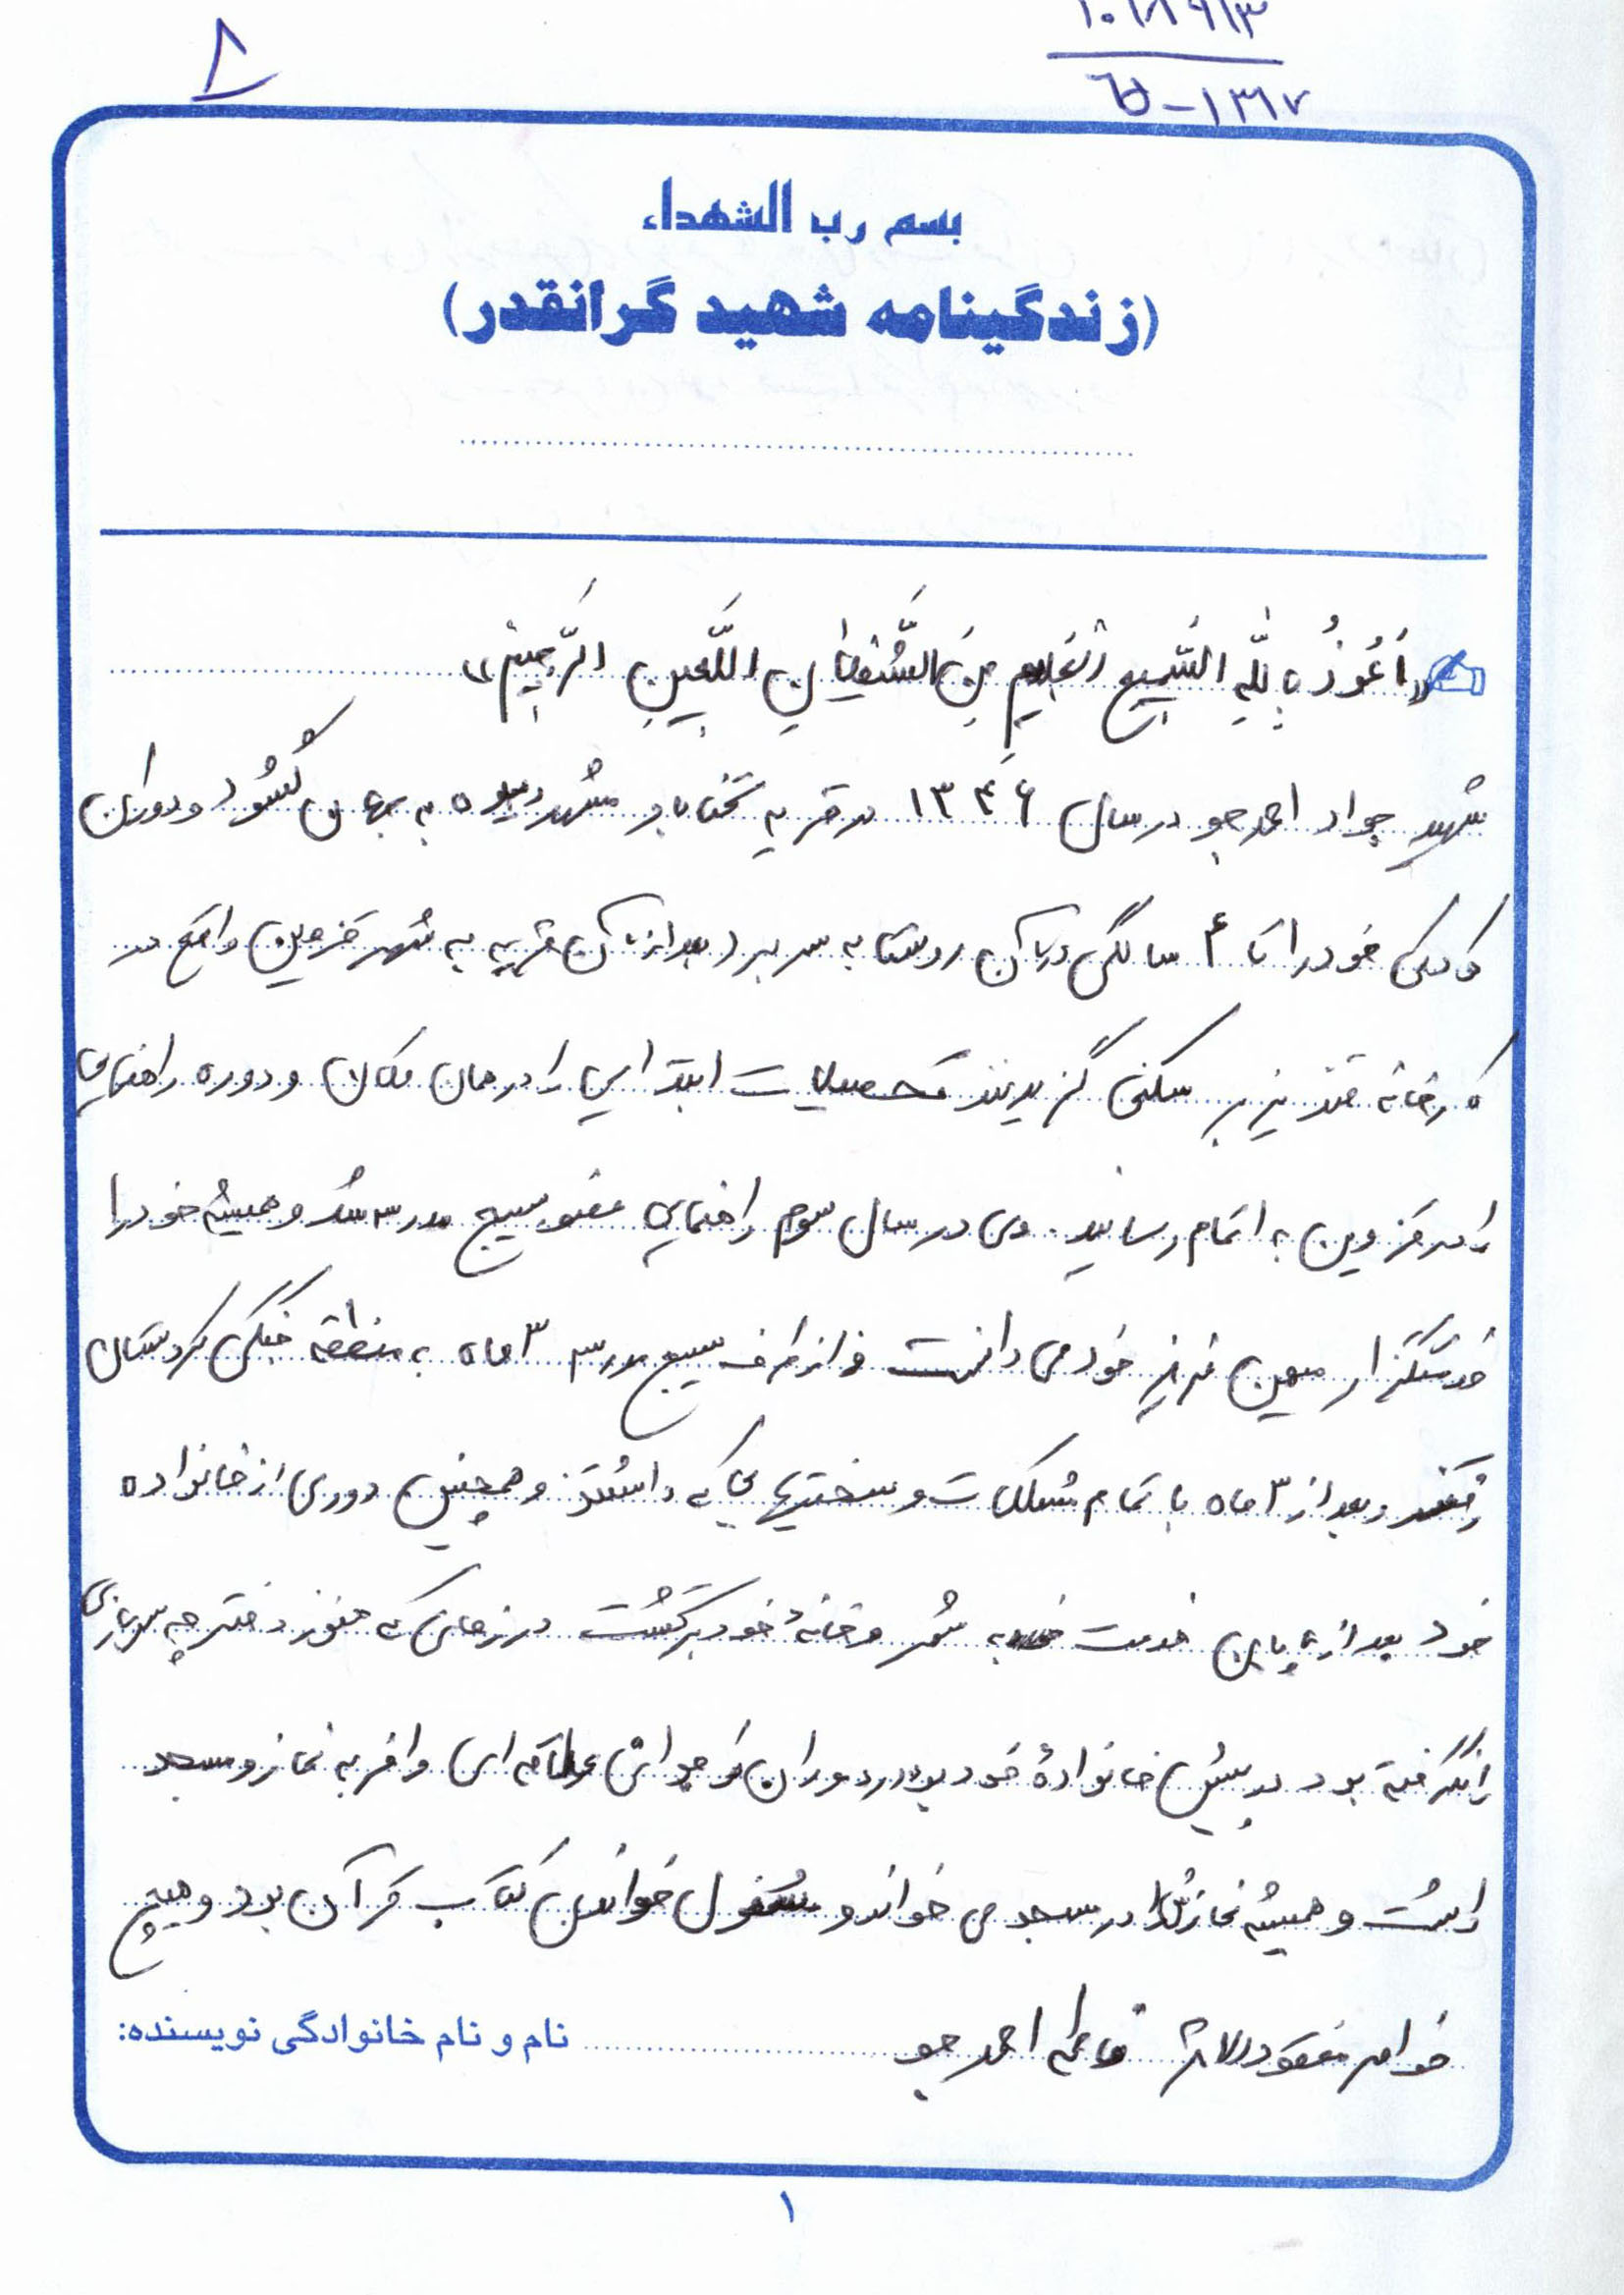 ۸
۶۵-۱۳۶۷
بسم رب الشهداء
(زندگینامه شهید گرانقدر)
«اَعُوذُ بِاللّهِ السَّمیعِ العَلیمِ مِنَ الشَّیطانِ اللَّعینِ الرَّجیمِ»
شهید جواد احمدجو در سال ۱۳۴۶ در قریه به جهان گشود و دوران
کودکی خود را تا ۴ سالگی در آن روستا به سر برد بعد از آن قریه به شهر قزوین واقع در
کارخانه قند نیز بر سکنی گزیدند تحصیلات ابتدایی را در همان مکان و دوره راهنمایی
را در قزوین به اتمام رسانید. وی در سال سوم راهنمایی عضو بسیج مدرسه شد و همیشه خود را
خدمتگزار میهن عزیز خود می دانست و از طرف بسیج مدرسه ۳ ماه به منطقه جنگی کردستان
رفتند و بعد از ۳ ماه با تمام مشکلات و سختیهایی که داشتند و همچنین دوری از خانواده
خود بعد از پایان خدمت به شهر و خانهٔ خود برگشت در زمانی که هنوز دفترچه سربازی
را نگرفته بود در پیش خانوادهٔ خود بود در دوران نوجوانی علاقه ای وافر به نماز و مسجد
داشت و همیشه نمازش را در مسجد می خواند و مشغول خواندن کتاب قرآن بود و هیچ
نام و نام خانوادگی نویسنده: خواهر مفقودالاثر فاطمه احمدجو
۱